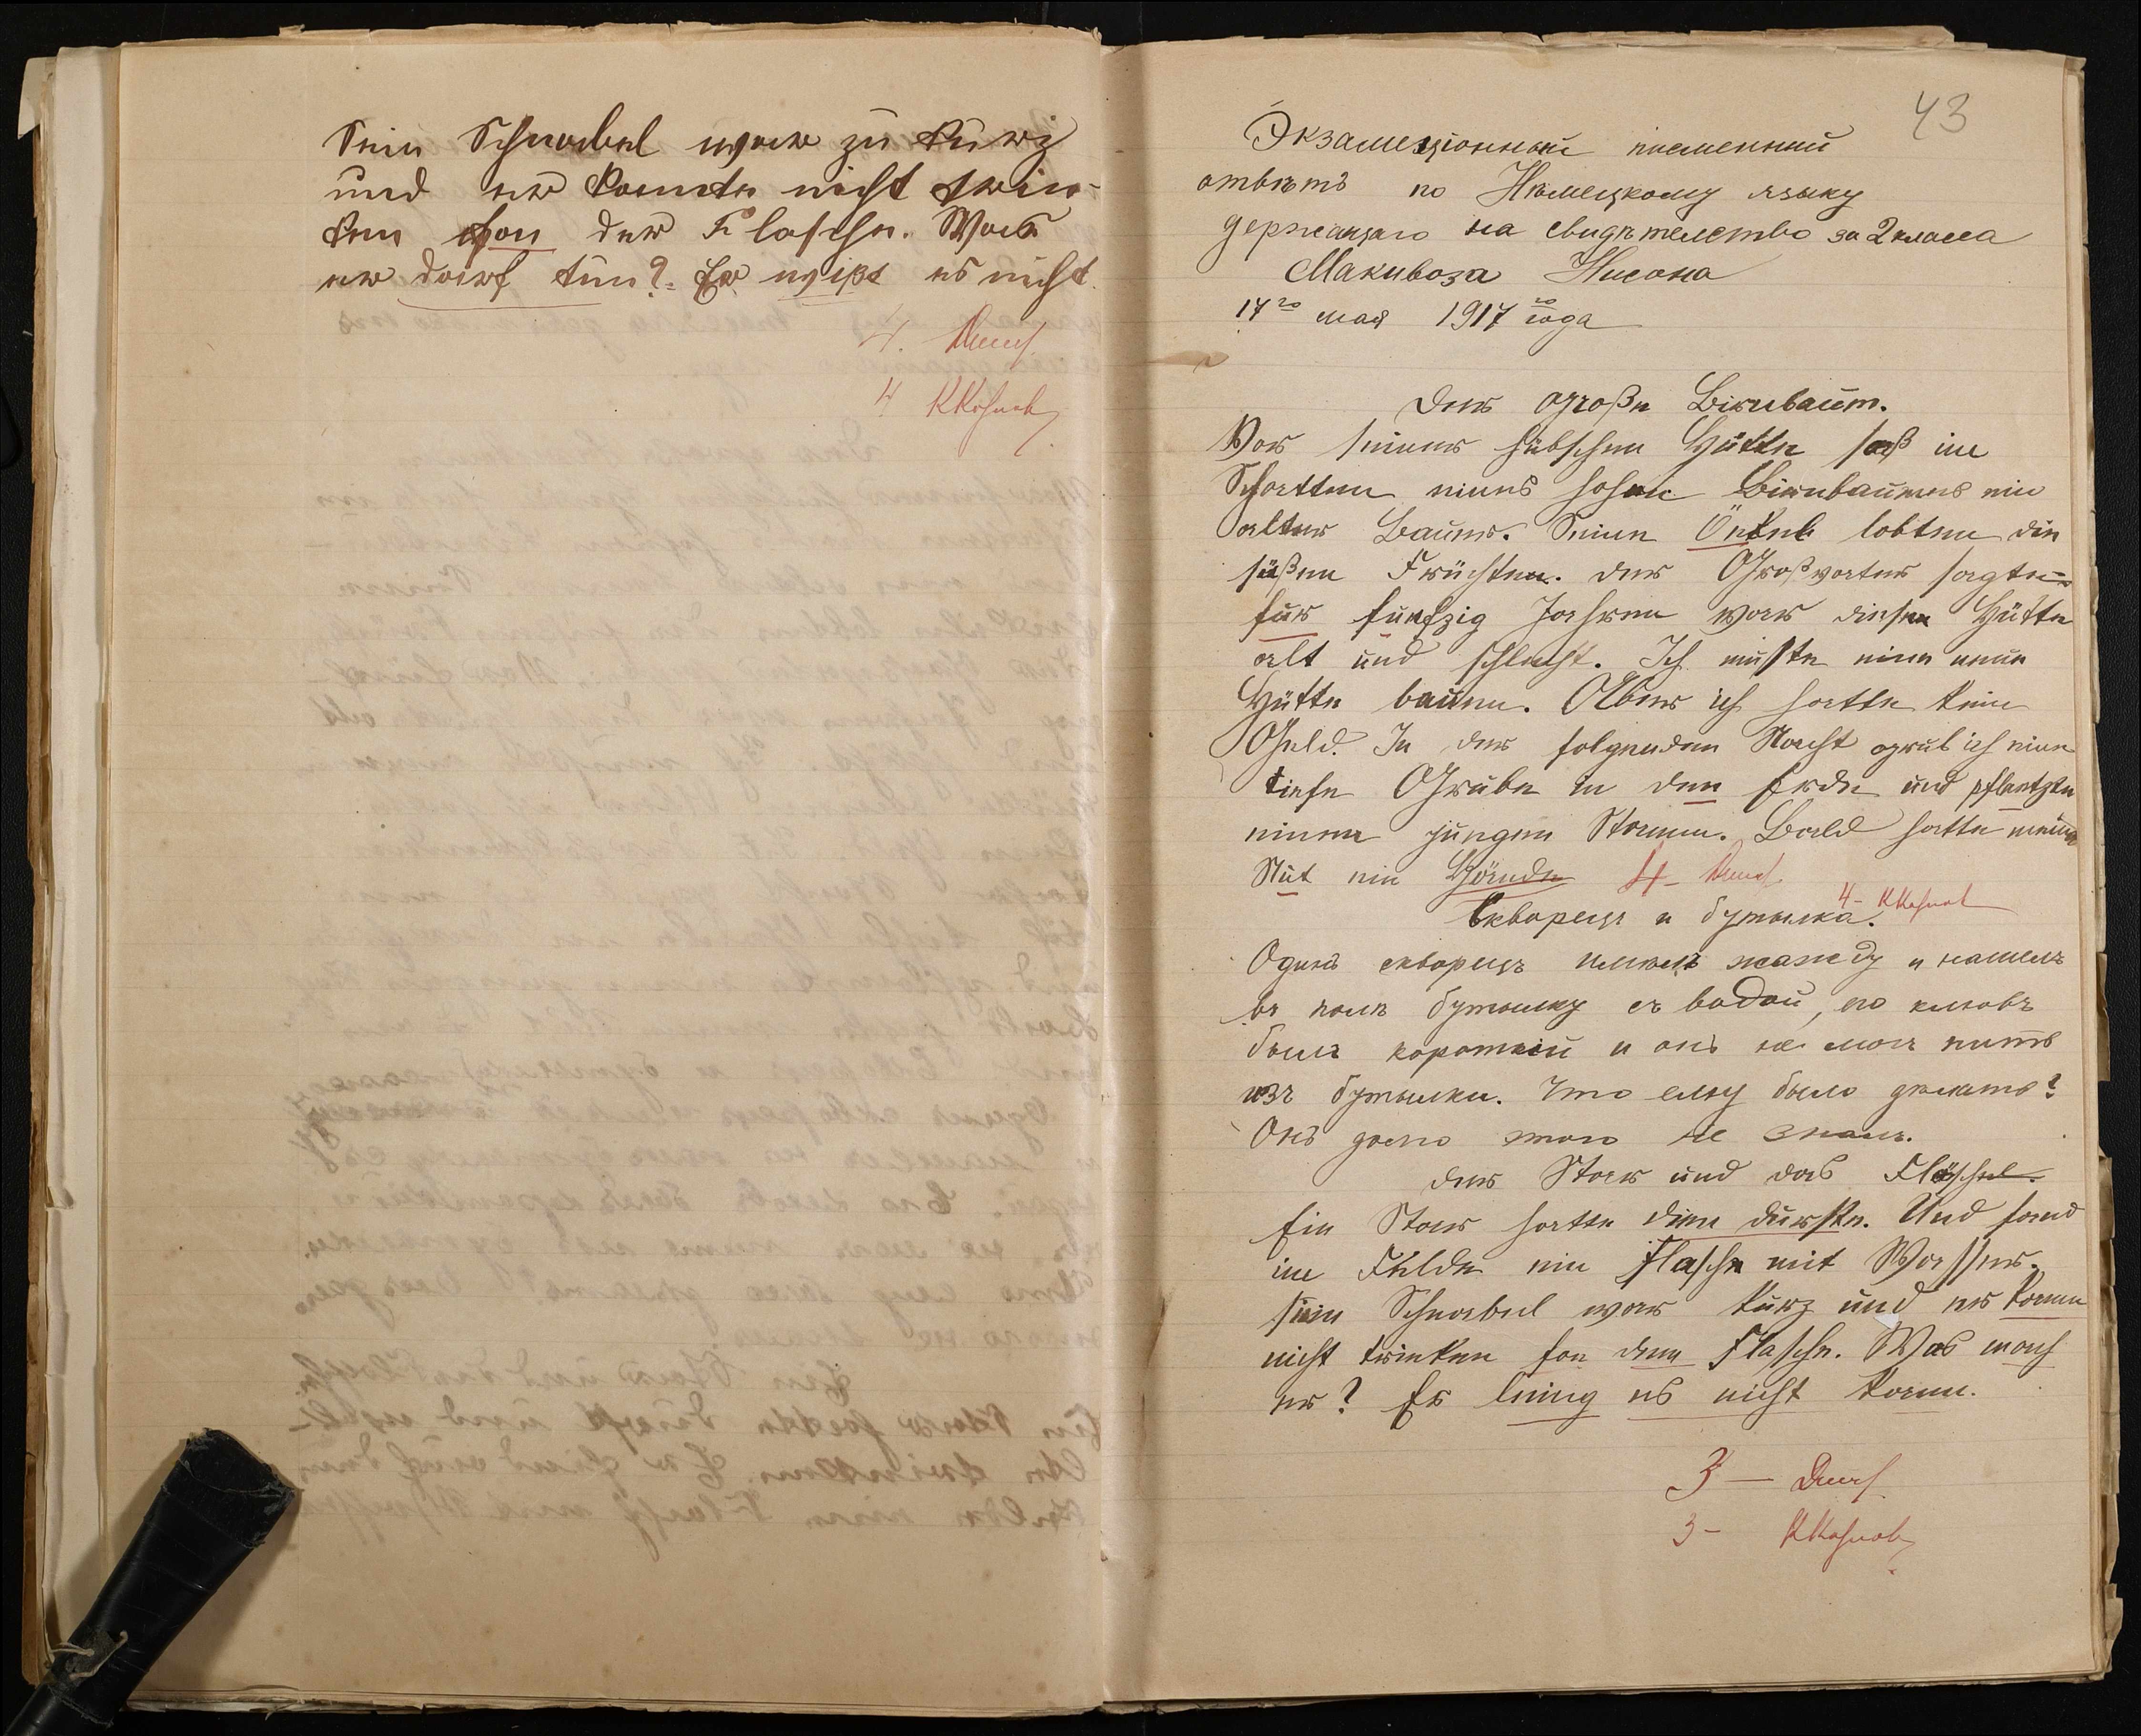 Sein Schnabel war zu kurz
und er konnte nicht trin-
ken fon der Flasche. Was
er darf tun? Er wißt es nicht.
4.
4
43
Экзамеціонный писменный
отвѣтъ по Нѣмецкому языку
держащаго на свидѣтелство за 2 класса
Макивоза Нисона
17го мая 1917го года
Der große Birnbaum.
Vor seiner hübschen Hütte saß im
Schatten eines hohen Birnbaumes ein
alter Bauer. Seine Önkel lobten die
süßen Früchten. Der Großvater sagte:
für funfzig Jahren war diesen Hütte
alt und schlecht. Ich muste eine neue
Hütte bauen. Aber ich hatte kein
Geld. In der folgenden Nacht grub ich eine
tiefe Grube in den Erde und pflantzte
einen jungen Stamm. Bald hatte meine
Nut ein Hörnde 4-
4-
Скворецъ и бутылка.
Одинъ скворецъ имѣлъ жажду и нашелъ
въ полѣ бутылку съ водой, его клювъ
былъ короткій и онъ не могъ пить
изъ бутылки. Что ему было дѣлать?
Онъ долго этого не зналъ.
Der Star und das Fläschel.
Ein Star hatte dien durste. Und fand
im Felde ein Flasche mit Wasser.
sein Schnabel war kurz und er kann
nicht trinken fon dem Flasche. Was mach
er? Er leinig es nicht kann.
3 —
3 -